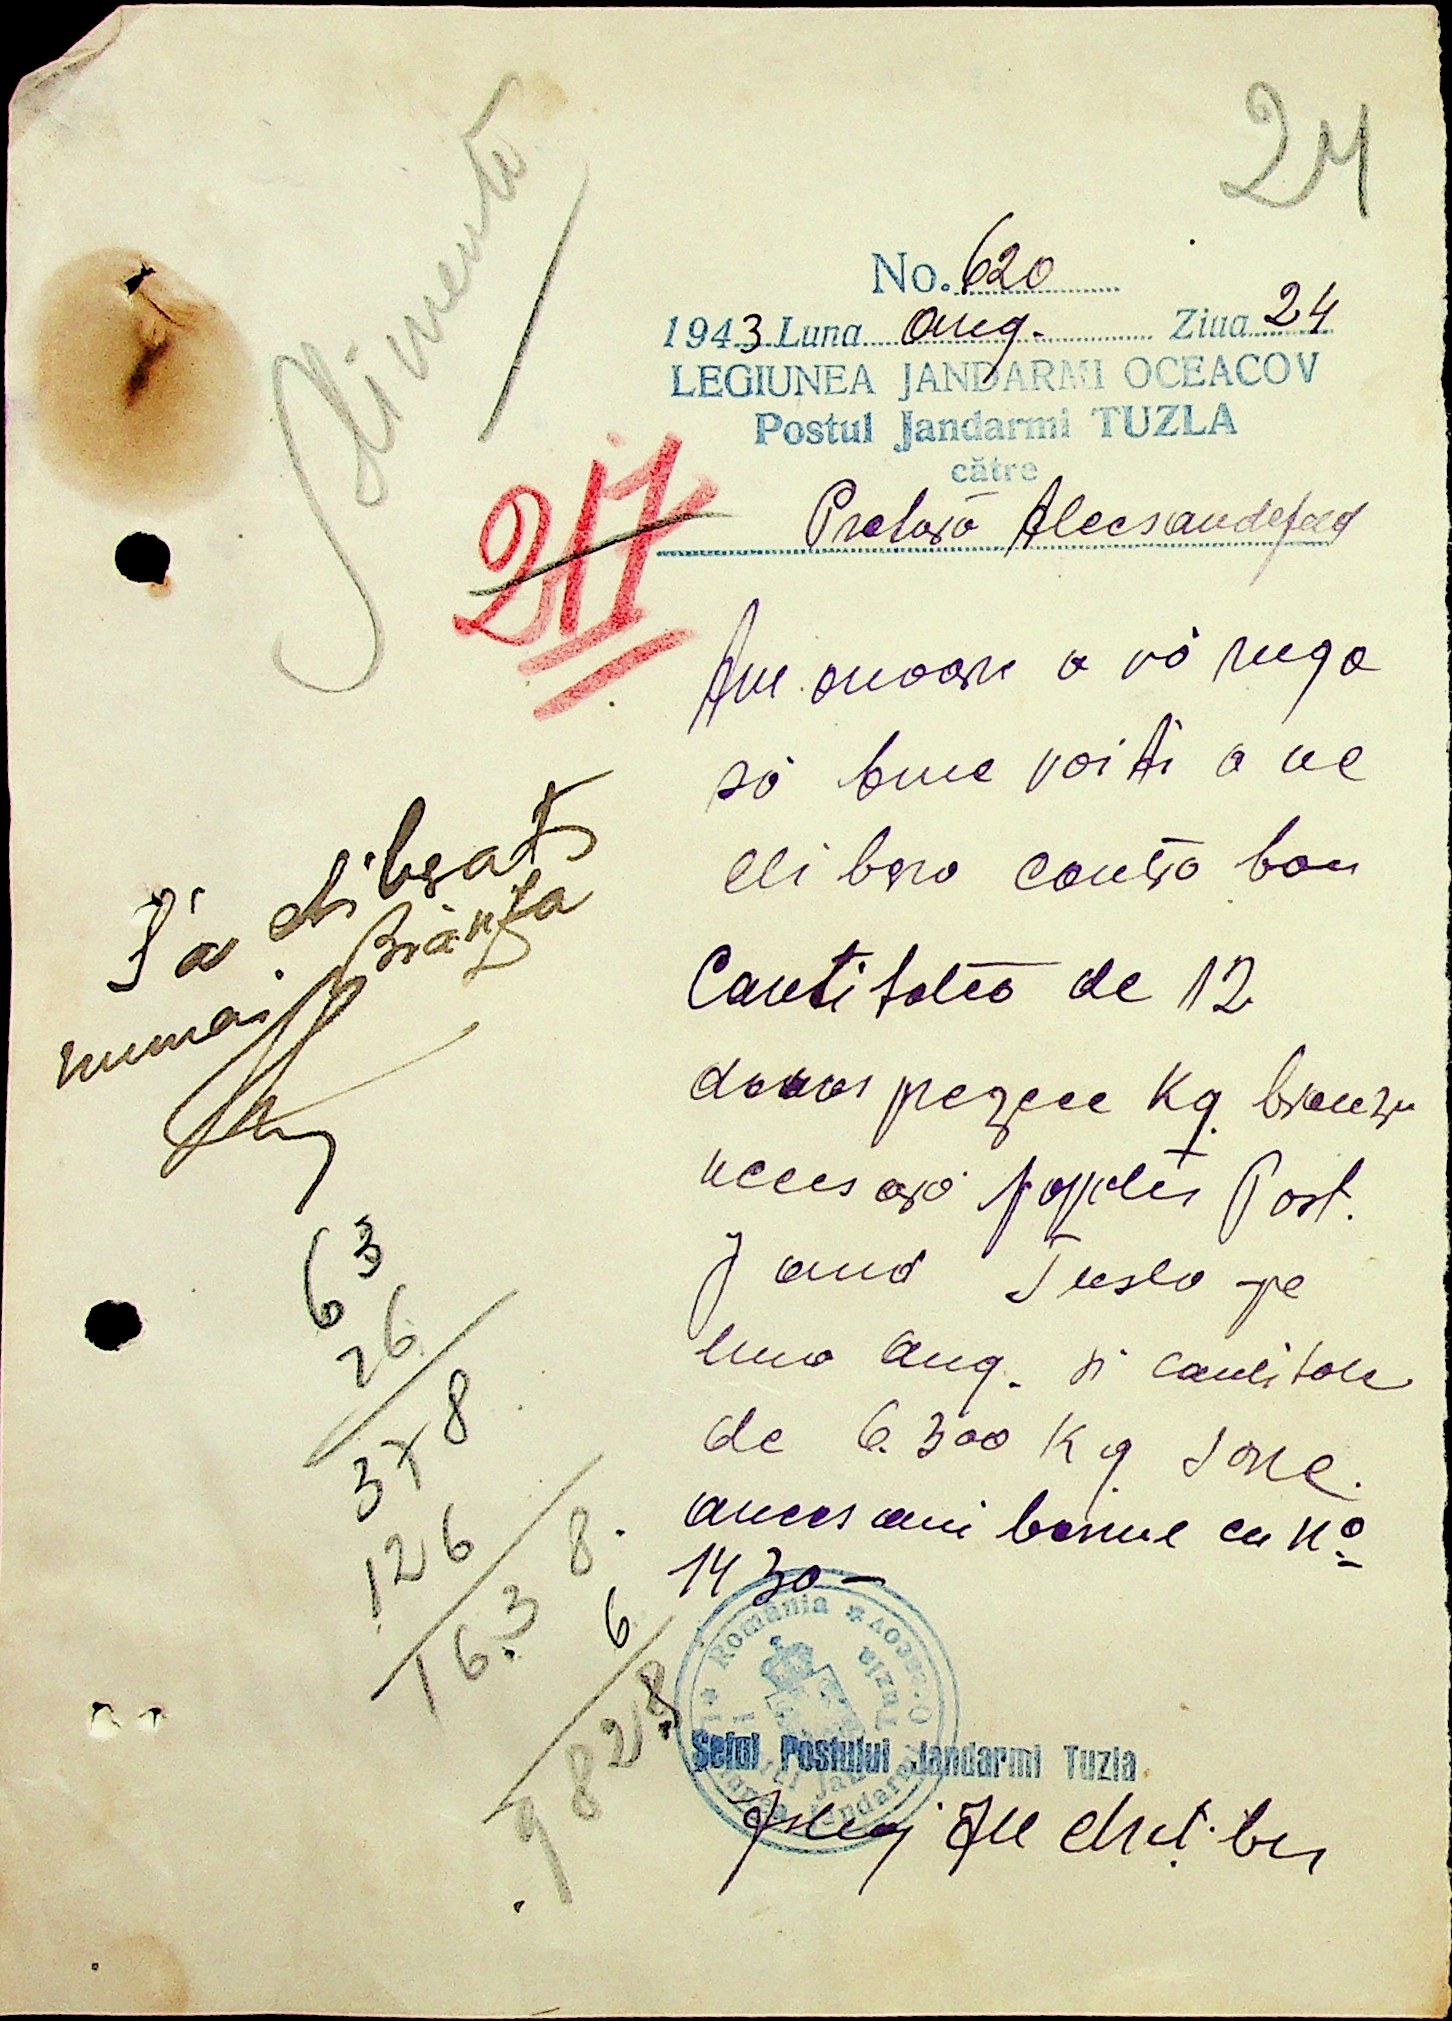 24
Alimente
No. 620
1943 Luna Aug. Ziua 24
LEGIUNEA JANDARMI OCEACOV
Postul Jandarmi TUZLA
către
Pretura Alecsandrfeld
217
Am onoare a vă ruga
să bine voiti a ne
elibera contra bon
Cantitatea de 12
doua spezece Kg. branza
necesară Post.
Jand Tusla pe
luna Aug. si cantitate
de 6.300 Kg sare.
bonul cu No
1430 —
S'a elibrat
numai Brânza
63
26
378
126
163 8.
6
9828
România
Șeful Postului Jandarmi Tuzla